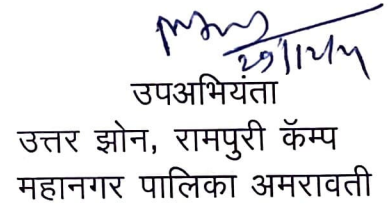 उपअभियंता
उत्तर झोन, रामपुरी कॅम्प
महानगर पालिका अमरावती